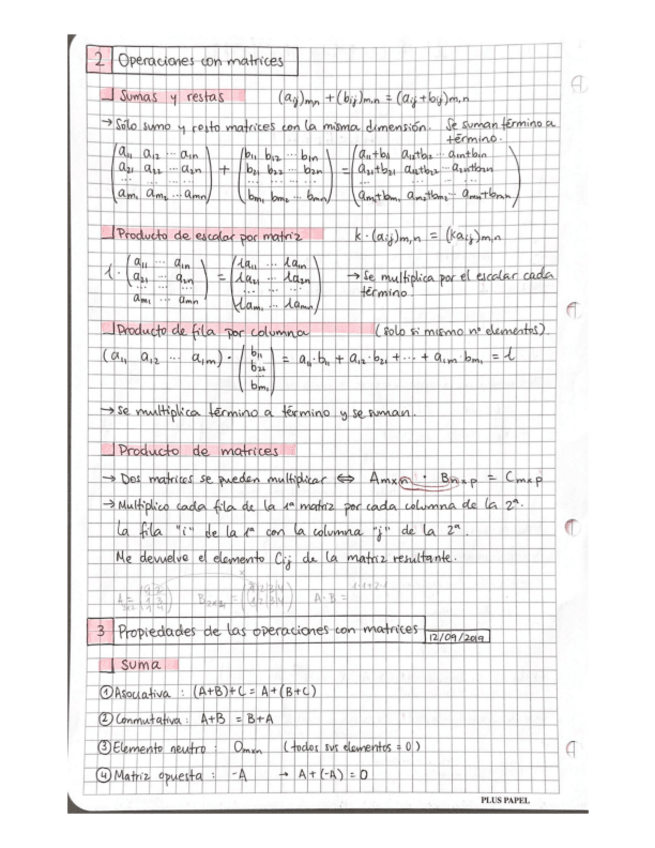 2 Operaciones con matrices
Sumas y restas (aij)m,n + (bij)m,n = (aij + bij)m,n
→ Sólo sumo y resto matrices con la misma dimensión. Se suman término a
término.
a11 a12 ... a1n + b11 b12 ... b1n = a11+b11 a12+b12 ... a1n+b1n
a21 a22 ... a2n b21 b22 ... b2n a21+b21 a22+b22 ... a2n+b2n
... ... ... ... ... ... ... ... ...
am1 am2 ... amn bm1 bm2 ... bmn am1+bm1 am2+bm2 ... amn+bmn
Producto de escalar por matriz k · (aij)m,n = (kaij)m,n
λ · a11 ... a1n = λa11 ... λa1n → Se multiplica por el escalar cada
a21 ... a2n λa21 ... λa2n término
... ... ... ... ... ...
am1 ... amn λam1 ... λamn
Producto de fila por columna (solo si mismo nº elementos).
(a11 a12 ... a1m) · b11 = a11·b11 + a12·b21 + ... + a1m·bm1 = λ
b22
...
bm1
→ Se multiplica término a término y se suman.
Producto de matrices
→ Dos matrices se pueden multiplicar ⇔ Amxn · Bnxp = Cmxp
→ Multiplico cada fila de la 1ª matriz por cada columna de la 2ª.
La fila "i" de la 1ª con la columna "j" de la 2ª.
Me devuelve el elemento Cij de la matriz resultante.
A·B =
3 Propiedades de las operaciones con matrices 12/09/2019
Suma
① Asociativa : (A+B)+C = A+(B+C)
② Conmutativa : A+B = B+A
③ Elemento neutro : Omxn (todos sus elementos = 0)
④ Matriz opuesta : -A → A+(-A) = 0
PLUS PAPEL